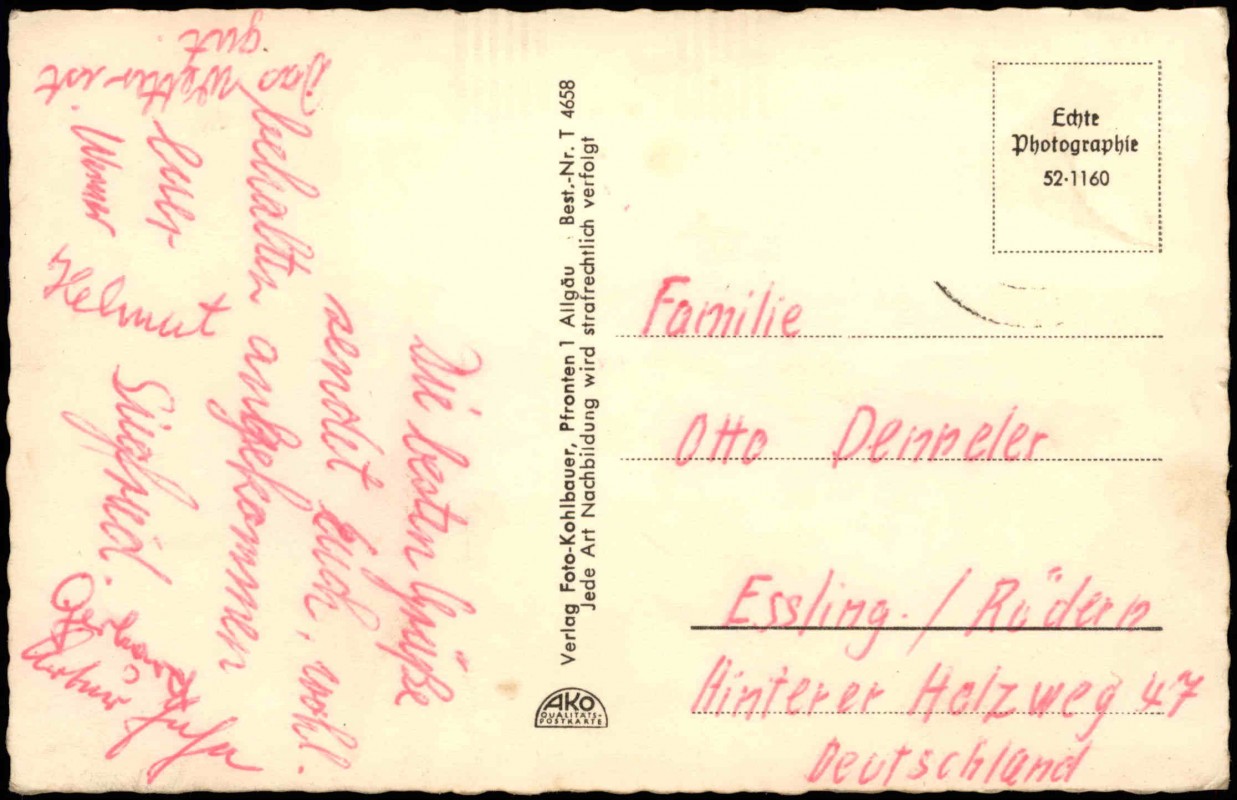 Die besten Grüße
sendet Euch, wohl
behalten angekommen
Euer
Siegfried.
Das Wetter ist
gut.
Werner
Helmut
Gerhard
Arthur
Verlag Foto-Kohlbauer, Pfronten 1 Allgäu Best.-Nr. T 4658
Jede Art Nachbildung wird strafrechtlich verfolgt
AKO
QUALITÄTS-
POSTKARTE
Echte
Photographie
52·1160
Familie
Otto Denneler
Essling. / Rüdern
Hinterer Holzweg 47
Deutschland